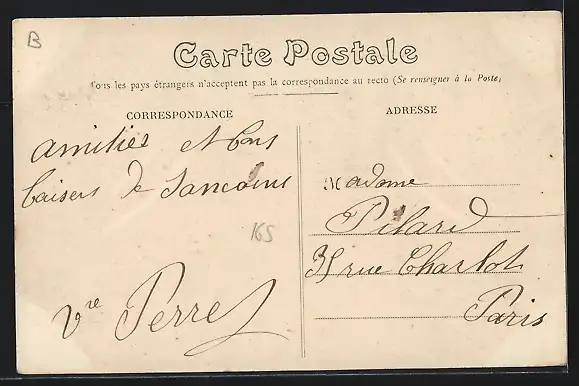 B
Carte Postale
Tous les pays étrangers n'acceptent pas la correspondance au recto (Se renseigner à la Poste)
CORRESPONDANCE
ADRESSE
amitiés et bons
baisers de Sancoins
165
Vve Perret
Madame
Pilard
35 rue Charlot
Paris